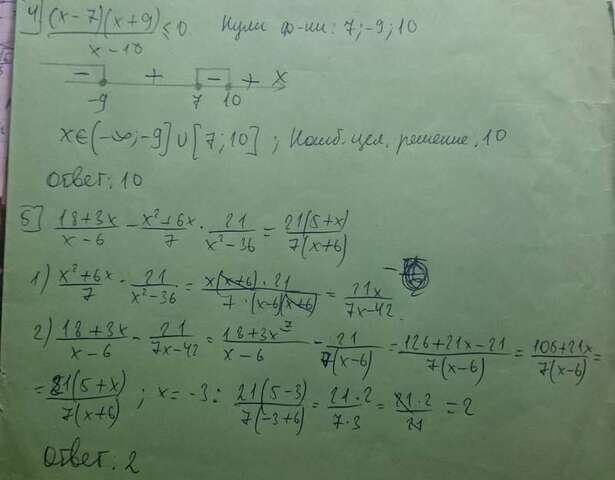 4] (x-7)(x+9)/x-10 ≤ 0 Нули ф-ии: 7; -9; 10
- + - + x
-9 7 10
x∈(-∞; -9]∪[7; 10] ; Наиб. цел. решение. 10
Ответ: 10
5] 18+3x/x-6 - x²+6x/7 · 21/x²-36 = 21(5+x)/7(x+6)
1) x²+6x/7 · 21/x²-36 = x(x+6)·21/7·(x-6)(x+6) = 21x/7x-42
2) 18+3x/x-6 - 21/7x-42 = 18+3x/x-6 ⁷ - 21/7(x-6) = 126+21x-21/7(x-6) = 106+21x/7(x-6) =
= 21(5+x)/7(x+6) ; x = -3: 21(5-3)/7(-3+6) = 21·2/7·3 = 21·2/21 = 2
Ответ: 2